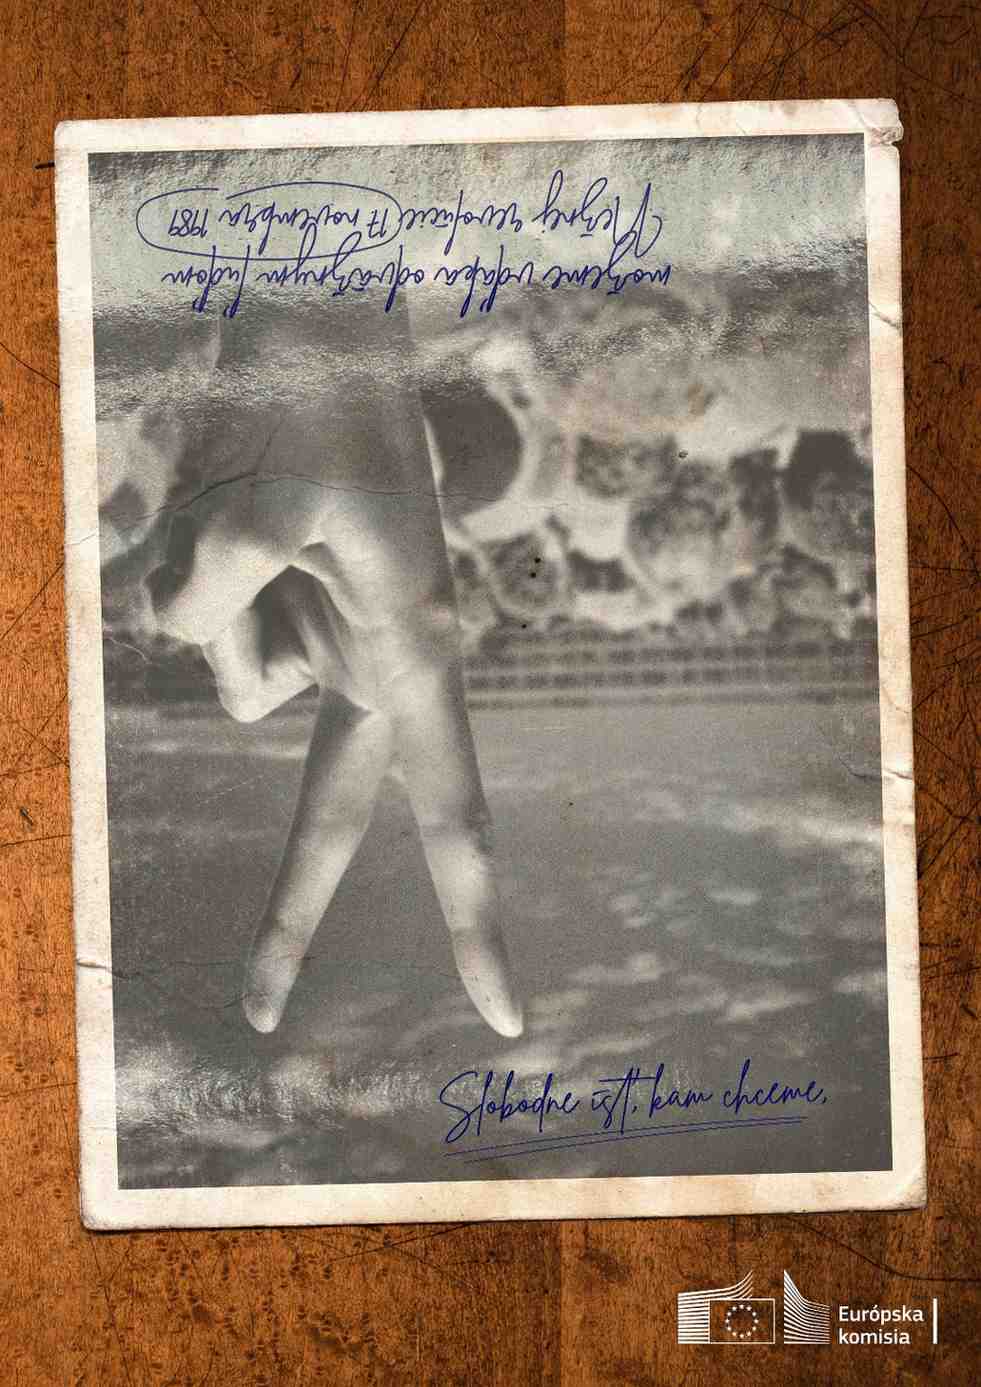 Slobodne ísť, kam chceme,
môžeme vďaka odvážnym ľuďom
Nežnej revolúcie 17 novembra 1989
Európska
komisia